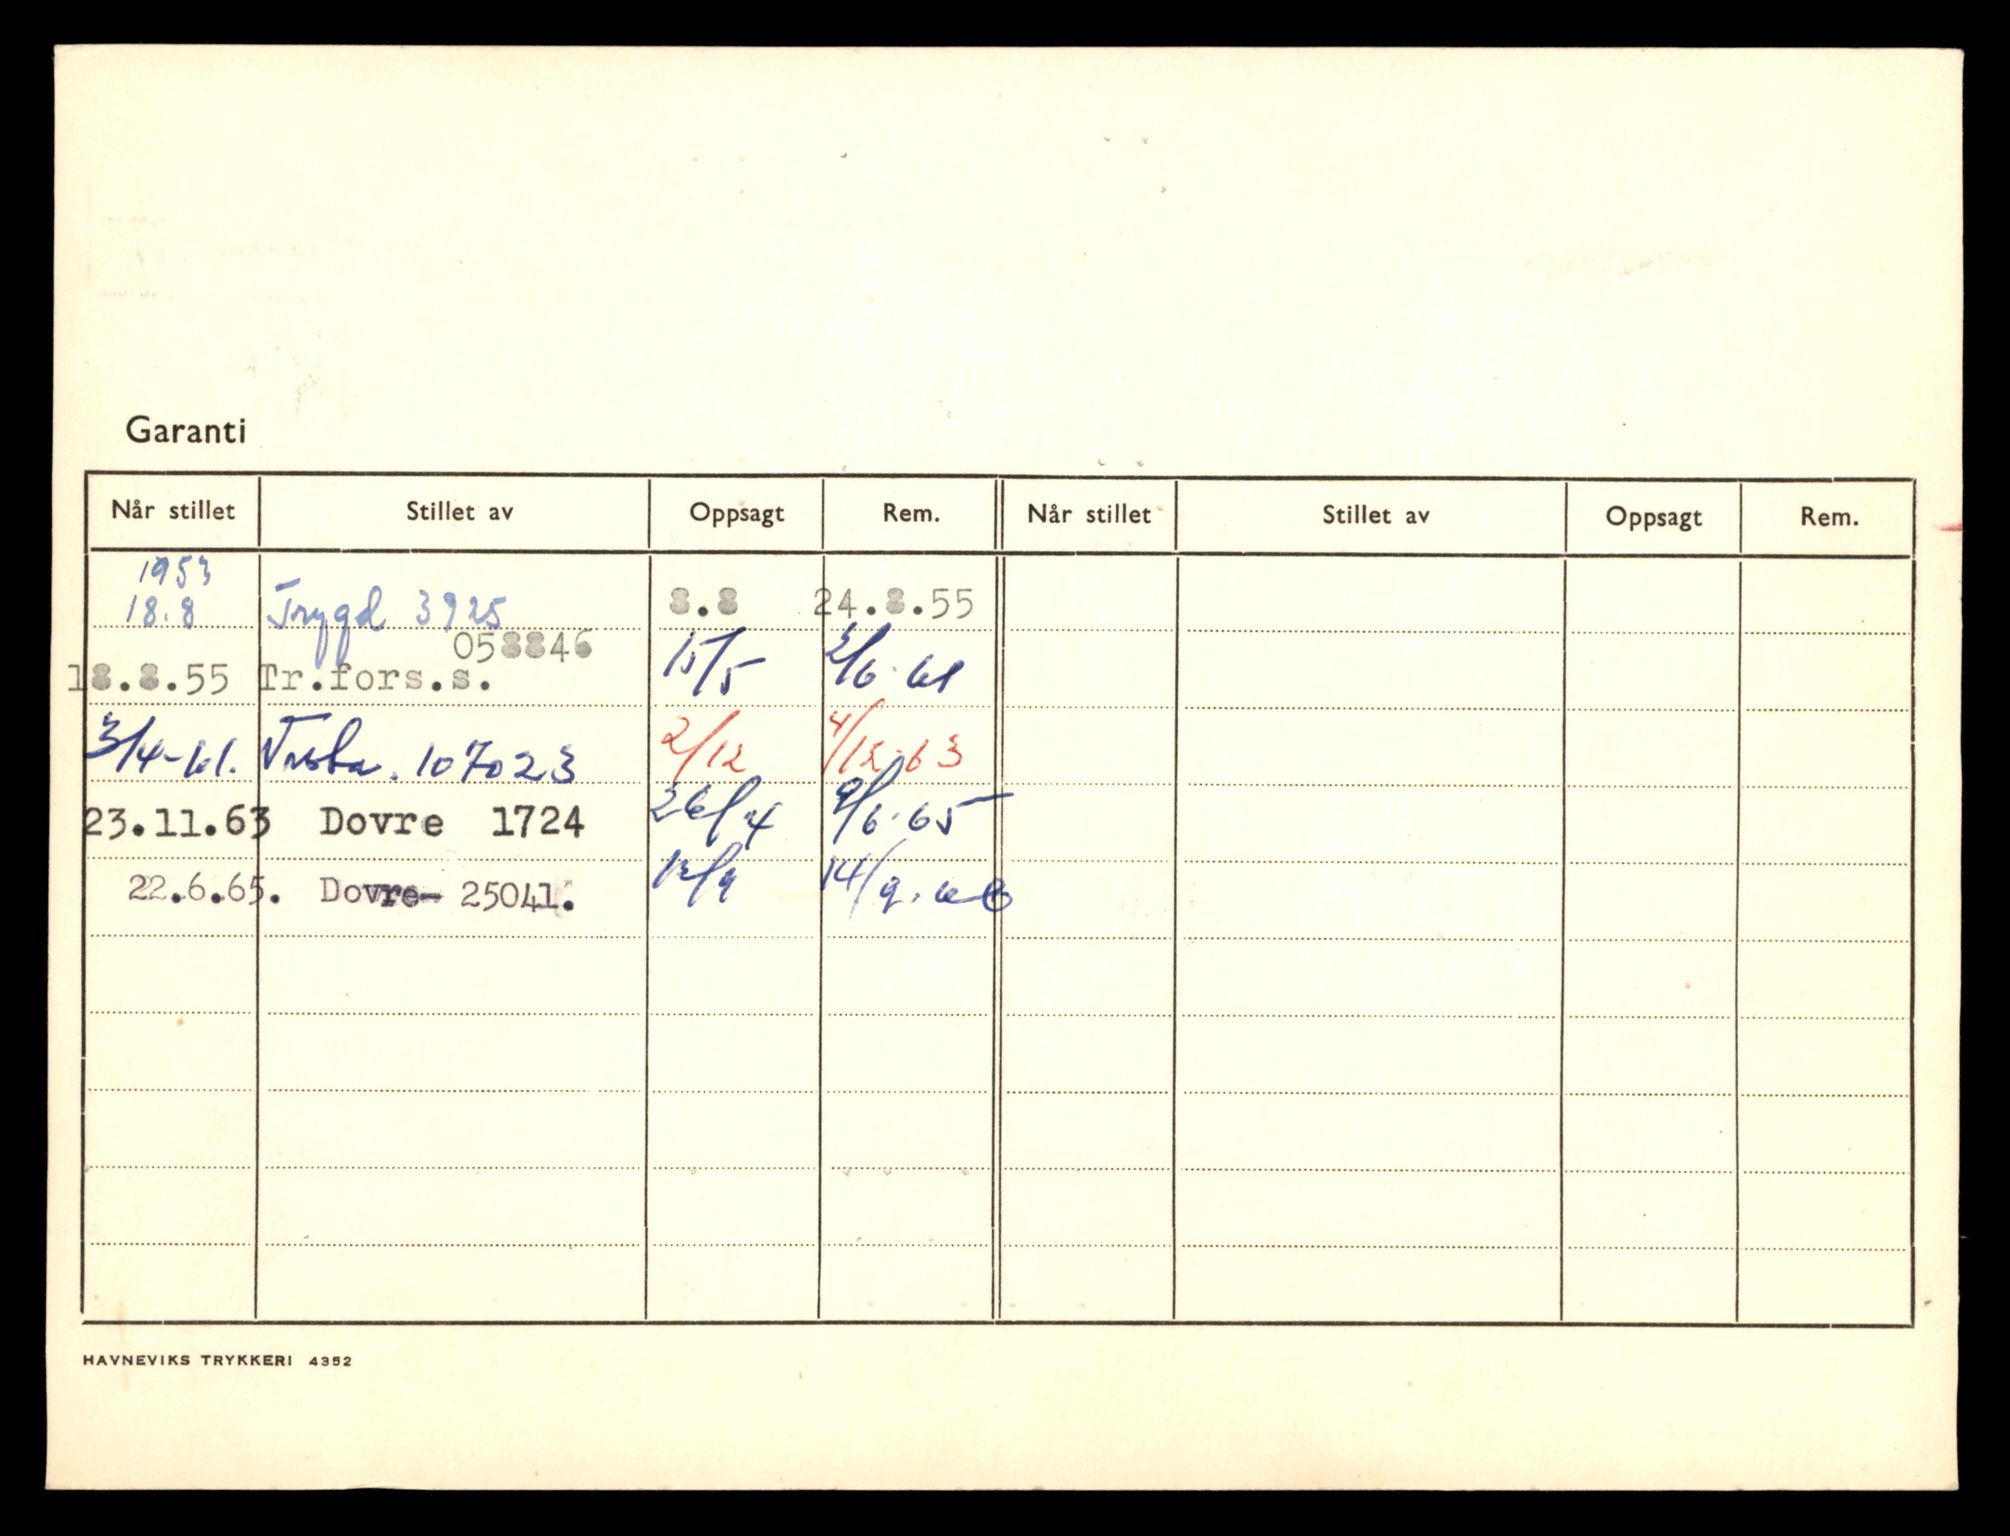 Garanti
Når stillet Stillet av Oppsagt Rem. Når stillet Stillet av Oppsagt Rem.
1953
18.8 Trygd 3925 8.8 24.8.55
058846
18.8.55 Tr.fors.s. 15/5 2/6.61
3/4-61. 107023 2/12 4/12.63
23.11.63 Dovre 1724 26/4 9/6.65
22.6.65. Dovre- 25041. 12/9 14/9.68
HAVNEVIKS TRYKKERI 4352